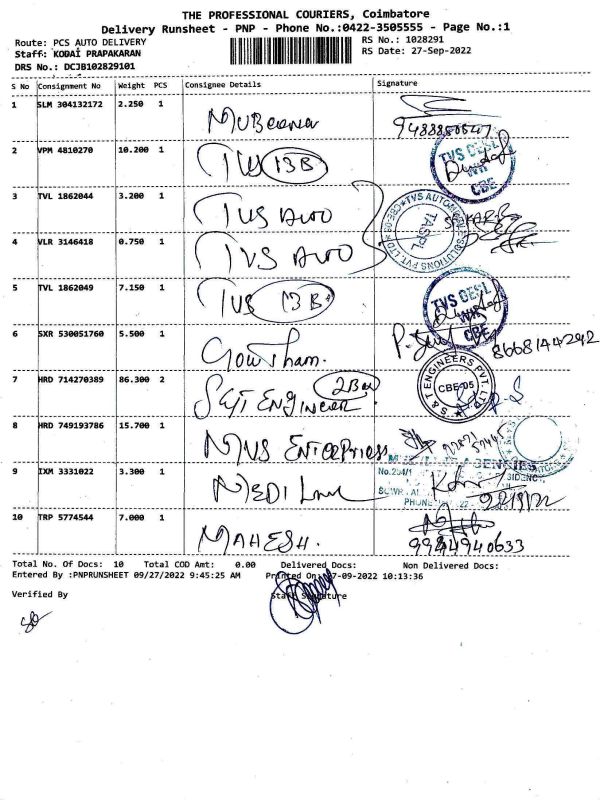 THE PROFESSIONAL COURIERS, Coimbatore
Delivery Runsheet - PNP - Phone No.:0422-3505555 - Page No.:1
Route: PCS AUTO DELIVERY
RS No.: 1028291
Staff: KODAI PRAPAKARAN
RS Date: 27-Sep-2022
DRS No.: DCJB102829101
S No Consignment No Weight PCS Consignee Details Signature
1 SLM 304132172 2.250 1
2 VPM 4810270 10.200 1 TVS 13B
TVS
CBE
3 TVL 1862044 3.200 1 TVS Auto
TASPL
4 VLR 3146418 0.750 1 TVS Auto
5 TVL 1862049 7.150 1 TVS 13B
TVS
CBE
6 SXR 530051760 5.500 1 Gowtham.
8668144292
7 HRD 714270389 86.300 2 S&T ENGINEER.
S & T ENGINEERS PVT. LTD.
CBE-05
8 HRD 749193786 15.700 1 MVS Enterpriess
9 IXM 3331022 3.300 1 MEDI
10 TRP 5774544 7.000 1 MAHESH.
9944940633
Total No. Of Docs: 10 Total COD Amt: 0.00 Delivered Docs: Non Delivered Docs:
Entered By :PNPRUNSHEET 09/27/2022 9:45:25 AM Printed On: 27-09-2022 10:13:36
Verified By Staff Signature